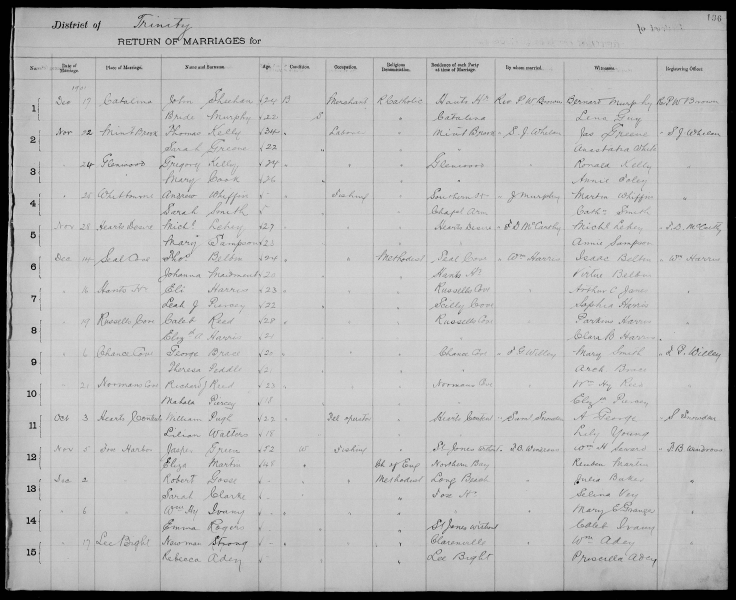 136
District of Trinity
RETURN OF MARRIAGES for
Date of Marriage. Place of Marriage. Name and Surname. Age. Condition. Occupation. Religious Denomination. Residence of each Party at time of Marriage. By whom married. Witnesses. Registering Officer
1901
1 Dec 17 Catalina John Sheehan 24 B Merchant R Catholic Hants Hr Rev P W Brown Bernard Murphy Re P W Brown
Bride Murphy 22 S " Catalina Lena Guy
2 Nov 12 Mint Brook Thomas Kelly 34 " Labour " Mint Brook " S J Whelan Jas Greene " S J Whelan
Sarah Greene 22 " " " Anastatia White
3 " 24 Glenwood Gregory Kelly 24 " " " Glenwood " " Ronald Kelly "
Mary Cook 26 " " Annie Foley
4 " 28 Whitbourne Andrew Whiffin " Fishing " Southern Hr " J Murphy Martin Whiffin "
Sarah Smith " Chapel Arm Cath. Smith
5 Nov 28 Hearts Desire Michl Lehey 27 " " " Hearts Desire " J D McCarthy Michl Lehey " J.D. McCarthy
Mary Sampson 23 " " Annie Sampson
6 Dec 14 Seal Cove Thos Belbin 24 " " Methodist Seal Cove " Wm Harris Isaac Belbin " Wm Harris
Johanna 21 " Hants Hr Virtue Belbin
7 " 16 Hants Hr Eli Harris 23 " " " Russells Cove " " Arthur C Janes "
Leah J Piercey 22 " Scilly Cove Sophia Harris
8 " 19 Russells Cove Caleb Reed 28 " " " Russells Cove " " Parkins Harris "
Harris 21 " " Clara B Harris
9 " 6 Chance Cove George Brace 20 " " " Chance Cove " Mary Smith "
Theresa Peddle 21 " " Arch Brace
10 " 21 Normans Cove Richard J Reid 23 " " " Normans Cove " " Wm Hy Reid "
Mahala Piercey 18 " " Piercey
11 Oct 3 Hearts Content William Pugh 22 " Tel operator " Hearts Content " Saml Snowden A George " S Snowden
Lilian Walters 18 " " Lily Young
12 Nov 5 Fox Harbor Jasper Green 52 W Fishing " St Jones Without Wm H Seward
Eliza Martin 48 " Ch of Eng Northern Bay Reuben Martin
13 Dec 2 " Robert Gosse " " Methodist Long Beach " Julia Baker "
Sarah Clarke " Fox Hr Selina Vey
14 " 6 " Wm Hy Ivany " " " " " Mary E Granger "
Emma Rogers " St Jones Without Caleb Ivany
15 " 17 Lee Bight Newman Strong " " " Clarenville " Wm Adey "
Rebecca Adey " Lee Bight Priscilla Adey